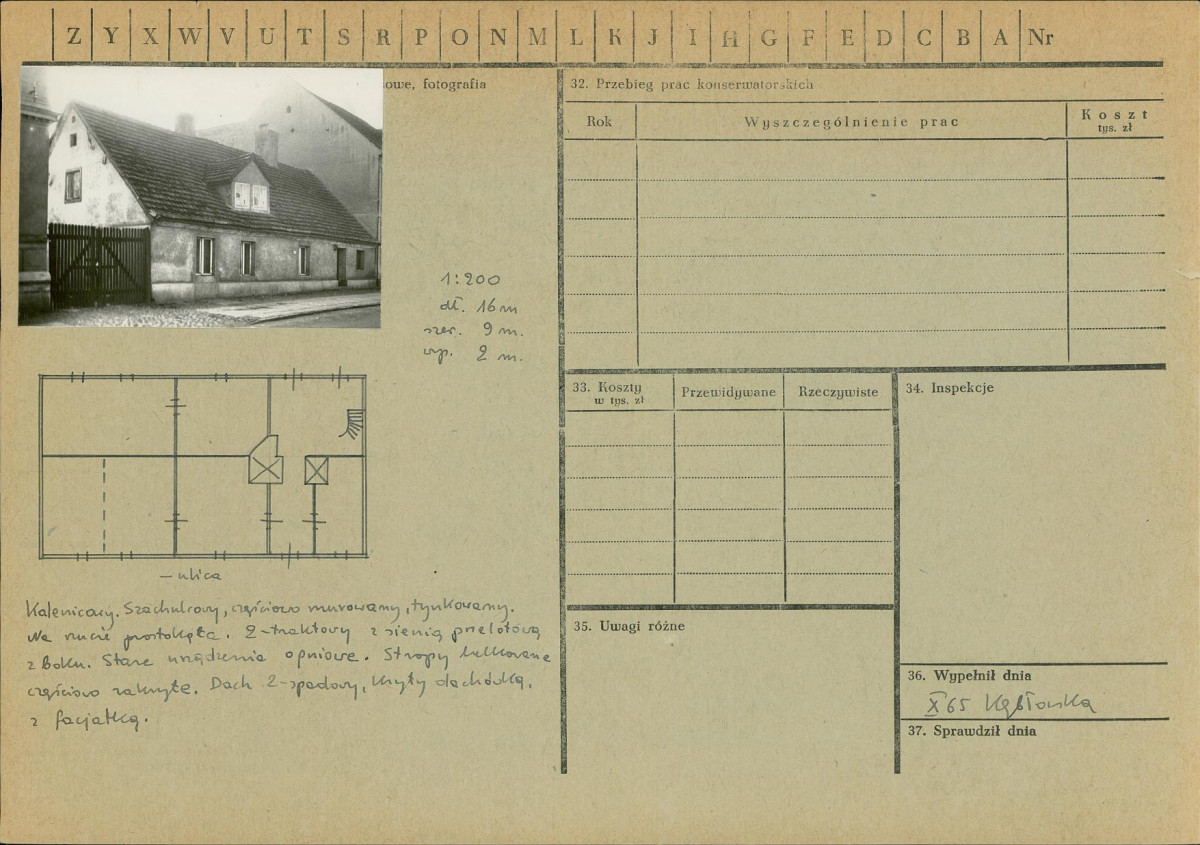 Z Y X W V U T S R P O N M L K J I H G F E D C B A Nr
owe, fotografia
1:200
dł. 16 m
szer. 9 m.
wys. 2 m.
– ulica
Kalenicowy. Szachulcowy, częściowo murowany, tynkowany.
Na rzucie prostokąta. 2-traktowy z sienią przelotową
z boku. Stare urządzenia ogniowe. Stropy belkowane
częściowo zakryte. Dach 2-spadowy, kryty dachówką,
z facjatką.
32. Przebieg prac konserwatorskich
Rok Wyszczególnienie prac Koszt
tys. zł
33. Koszty Przewidywane Rzeczywiste
w tys. zł
34. Inspekcje
35. Uwagi różne
36. Wypełnił dnia
X 65 Kębłowska
37. Sprawdził dnia